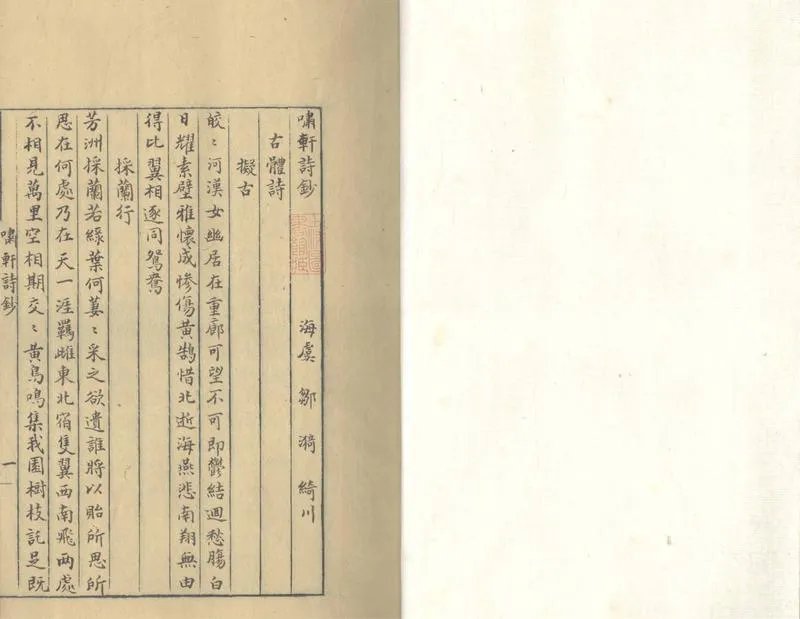 嘯軒詩鈔
海虞 鄒漪 綺川
古體詩
擬古
皎〻河漢女幽居在重廊可望不可即鬱結迴愁腸白
日耀素壁雅懷成慘傷黃鵠惜北逝海燕悲南翔無由
得比翼相逐同鴛鴦
採蘭行
芳洲採蘭若綠葉何萋〻采之欲遺誰將以貽所思所
思在何處乃在天一涯羈雌東北宿隻翼西南飛兩處
不相見萬里空相期交〻黃鳥鳴集我園樹枝託足既
嘯軒詩鈔
一